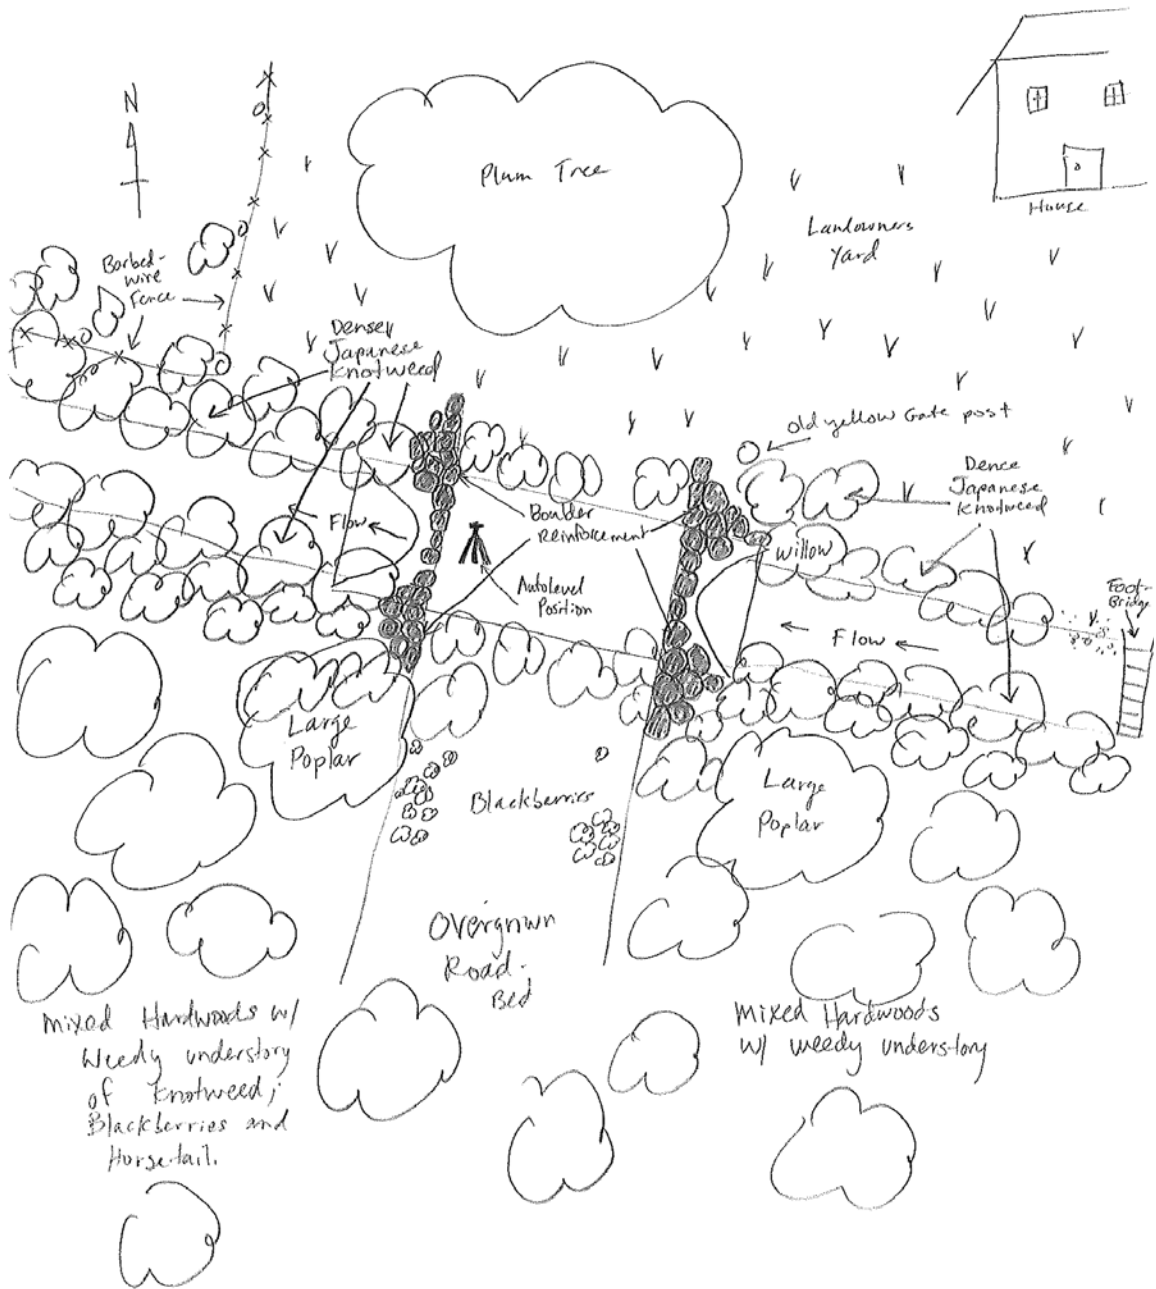 N
Plum Tree
House
Landowners
Yard
Barbed-
wire
Fence
Densey
Japanese
Knotweed
old yellow Gate post
Dence
Japanese
Knotweed
Boulder
reinforcement
Flow
Willow
Autolevel
Position
Foot-
Bridge
Flow
Large
Poplar
Large
Poplar
Blackberries
Overgrown
Road-
Bed
Mixed Hardwoods w/
Weedy understory
of Knotweed;
Blackberries and
Horsetail.
Mixed Hardwoods
w/ weedy understory